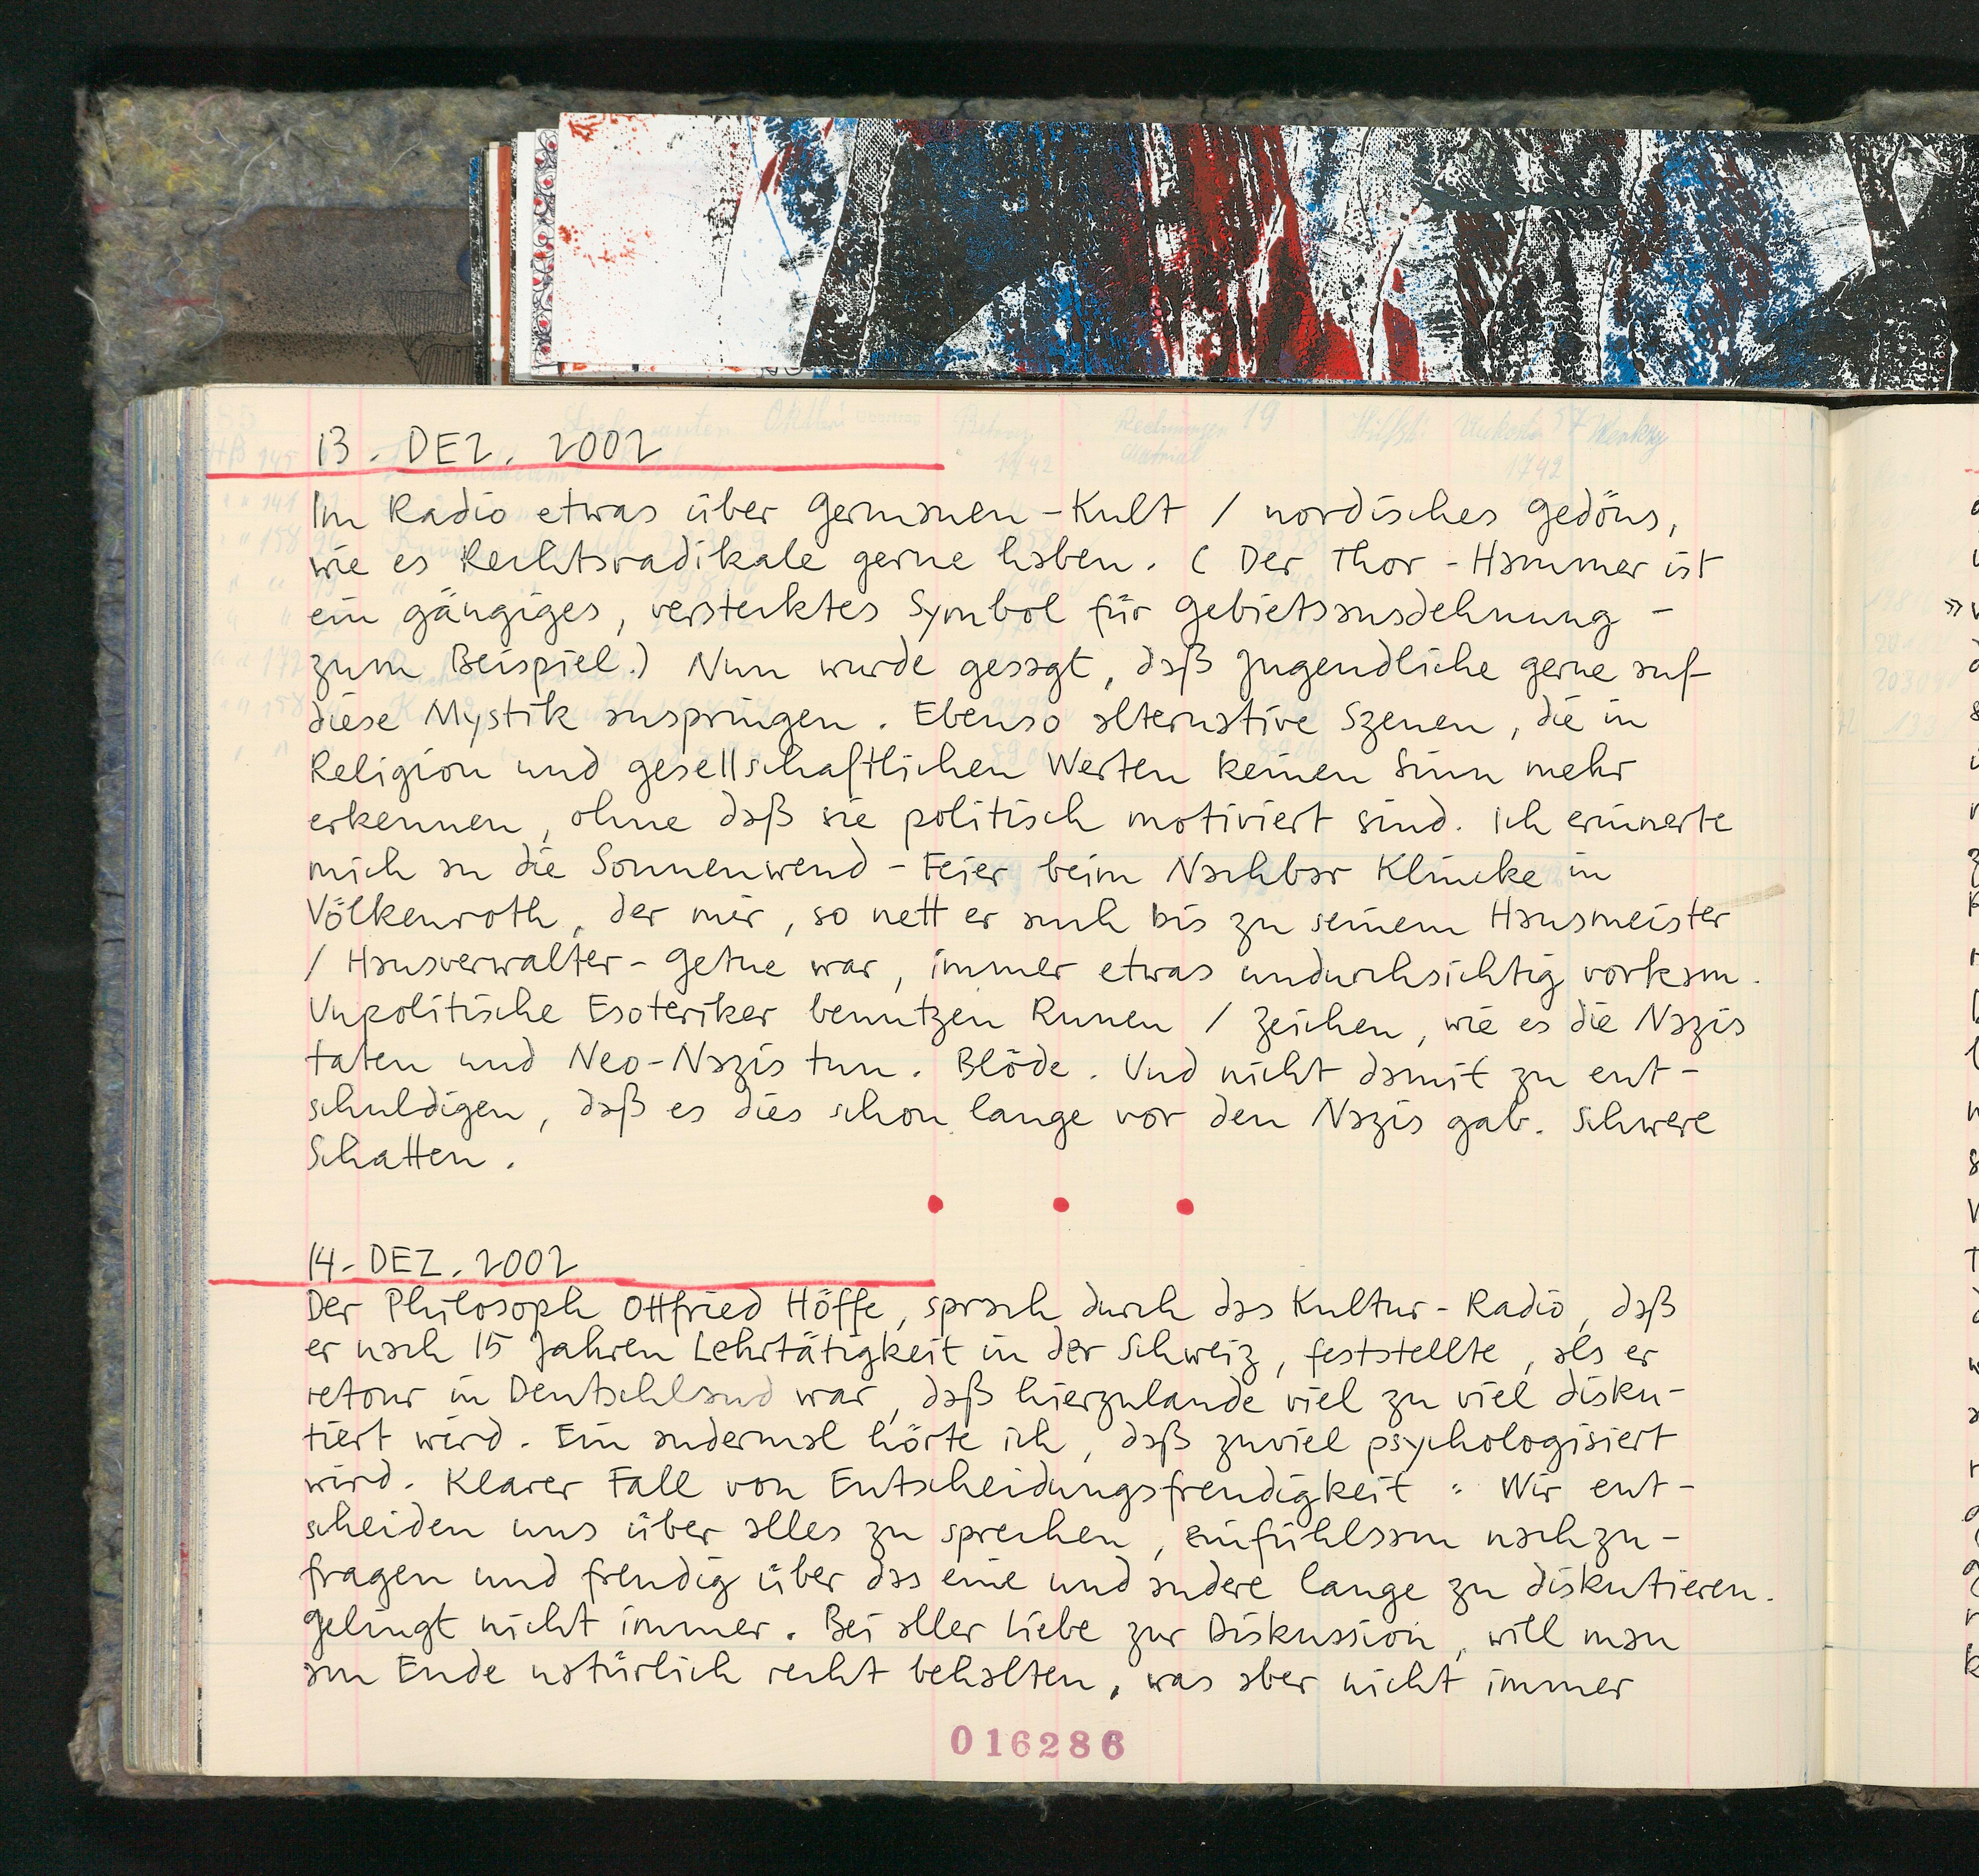 13. DEZ. 2002
Im Radio etwas über Germanen-Kult / nordisches Gedöns,
wie es Rechtsradikale gerne haben. (Der Thor-Hammer ist
ein gängiges, verstecktes Symbol für Gebietsausdehnung -
zum Beispiel.) Nun wurde gesagt, daß Jugendliche gerne auf
diese Mystik anspringen. Ebenso alternative Szenen, die in
Religion und gesellschaftlichen Werten keinen Sinn mehr
erkennen, ohne daß sie politisch motiviert sind. Ich erinnerte
mich an die Sonnenwend-Feier beim Nachbar Klincke in
Völkenroth, der mir, so nett er auch bis zu seinem Hausmeister
/ Hausverwalter-Getue war, immer etwas undurchsichtig vorkam.
Unpolitische Esoteriker benutzen Runen / Zeichen, wie es die Nazis
taten und Neo-Nazis tun. Blöde. Und nicht damit zu ent-
schuldigen, daß es dies schon lange vor den Nazis gab. Schwere
Schatten.
14. DEZ. 2002
Der Philosoph Ottfried Höffe, sprach durch das Kultur-Radio, daß
er nach 15 Jahren Lehrtätigkeit in der Schweiz, feststellte, als er
retour in Deutschland war, daß hierzulande viel zu viel disku-
tiert wird. Ein andermal hörte ich, daß zuviel psychologisiert
wird. Klarer Fall von Entscheidungsfreudigkeit: Wir ent-
scheiden uns über alles zu sprechen, einfühlsam nachzu-
fragen und freudig über das eine und andere lange zu diskutieren.
Gelingt nicht immer. Bei aller Liebe zur Diskussion, will man
am Ende natürlich recht behalten, was aber nicht immer
016286